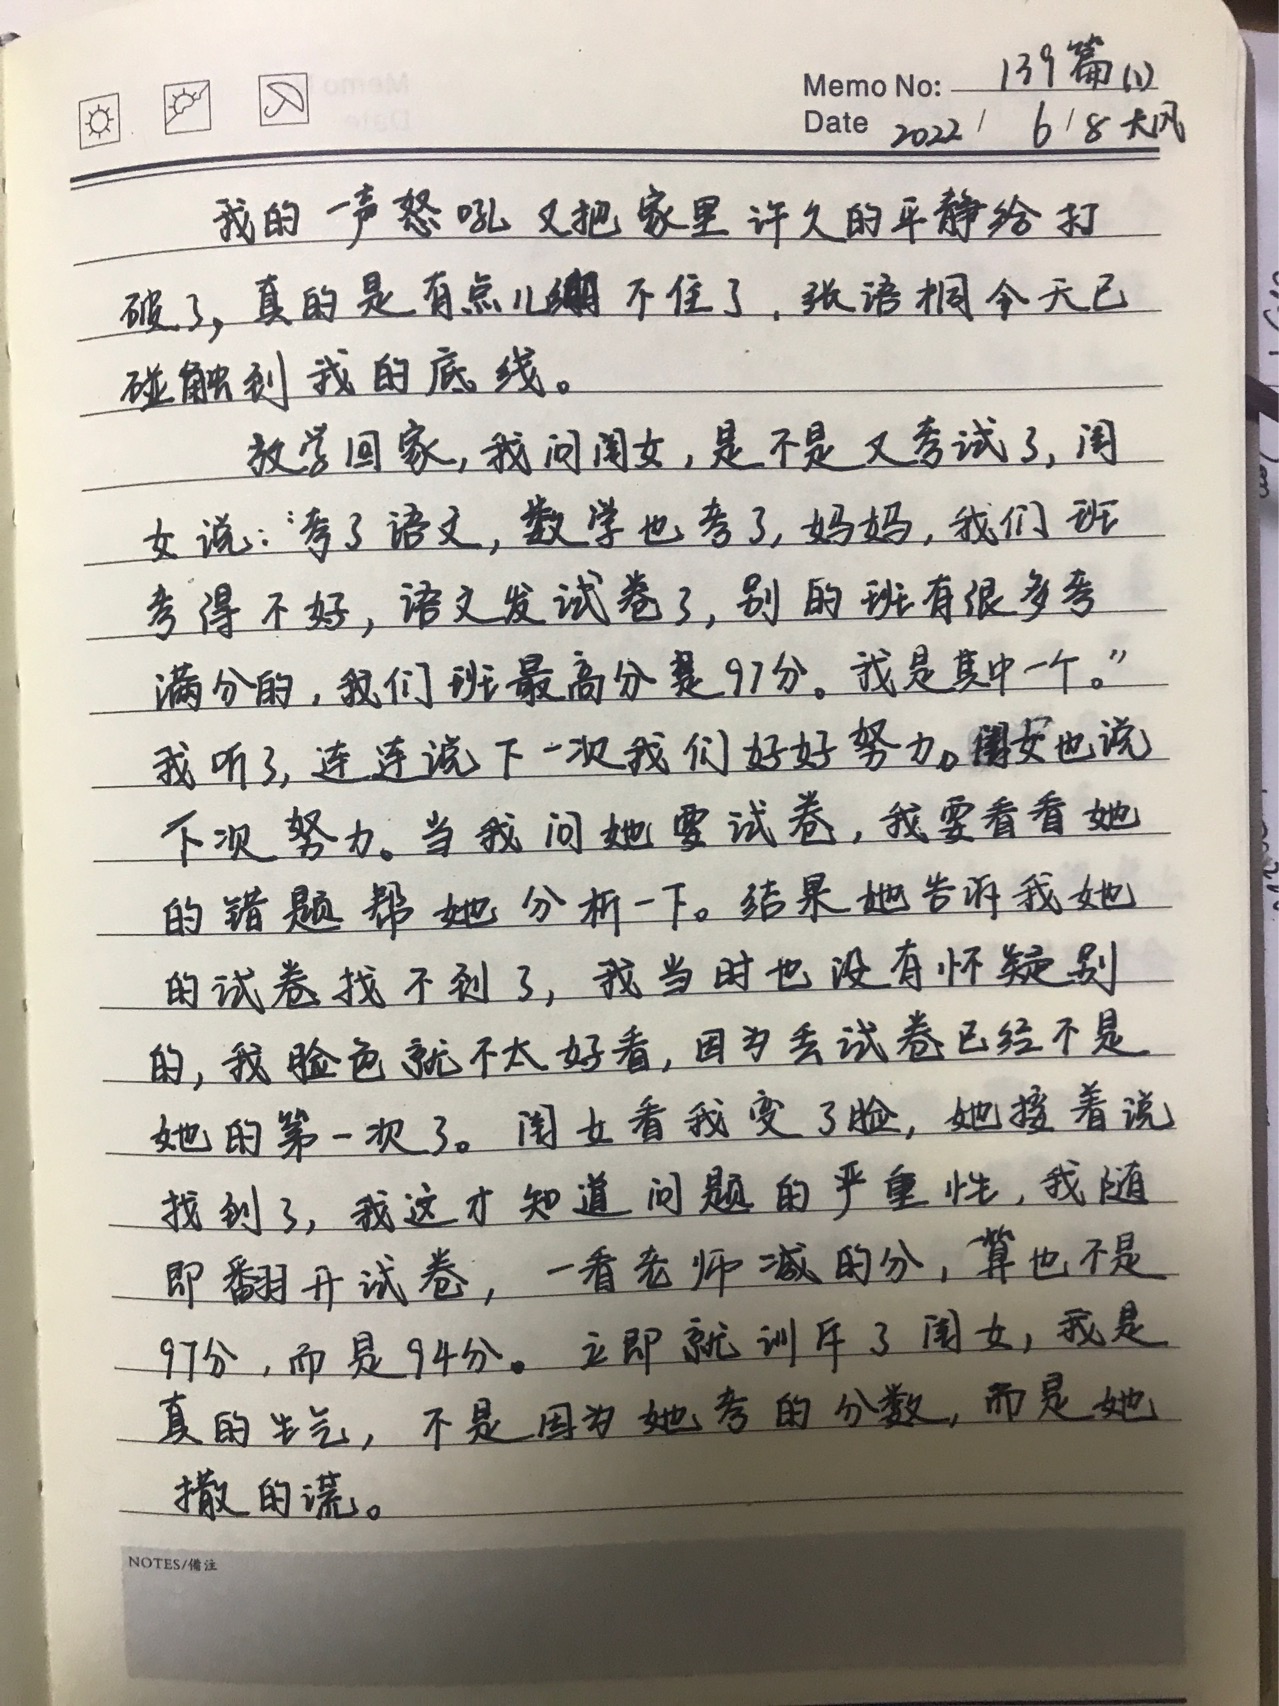 Memo No: 139篇(1)
Date 2022 / 6 / 8 大风
我的一声怒吼又把家里许久的平静给打
破了，真的是有点儿绷不住了．张语桐今天已
碰触到我的底线。
放学回家，我问闺女，是不是又考试了，闺
女说：“考了语文，数学也考了，妈妈，我们班
考得不好，语文发试卷了，别的班有很多考
满分的，我们班最高分是97分。我是其中一个。”
我听了，连连说下一次我们好好努力。闺女也说
下次努力。当我问她要试卷，我要看看她
的错题帮她分析一下。结果她告诉我她
的试卷找不到了，我当时也没有怀疑别
的，我脸色就不太好看，因为丢试卷已经不是
她的第一次了。闺女看我变了脸，她接着说
找到了，我这才知道问题的严重性，我随
即翻开试卷，一看老师减的分，算也不是
97分，而是94分。立即就训斥了闺女，我是
真的生气，不是因为她考的分数，而是她
撒的谎。
NOTES/備注